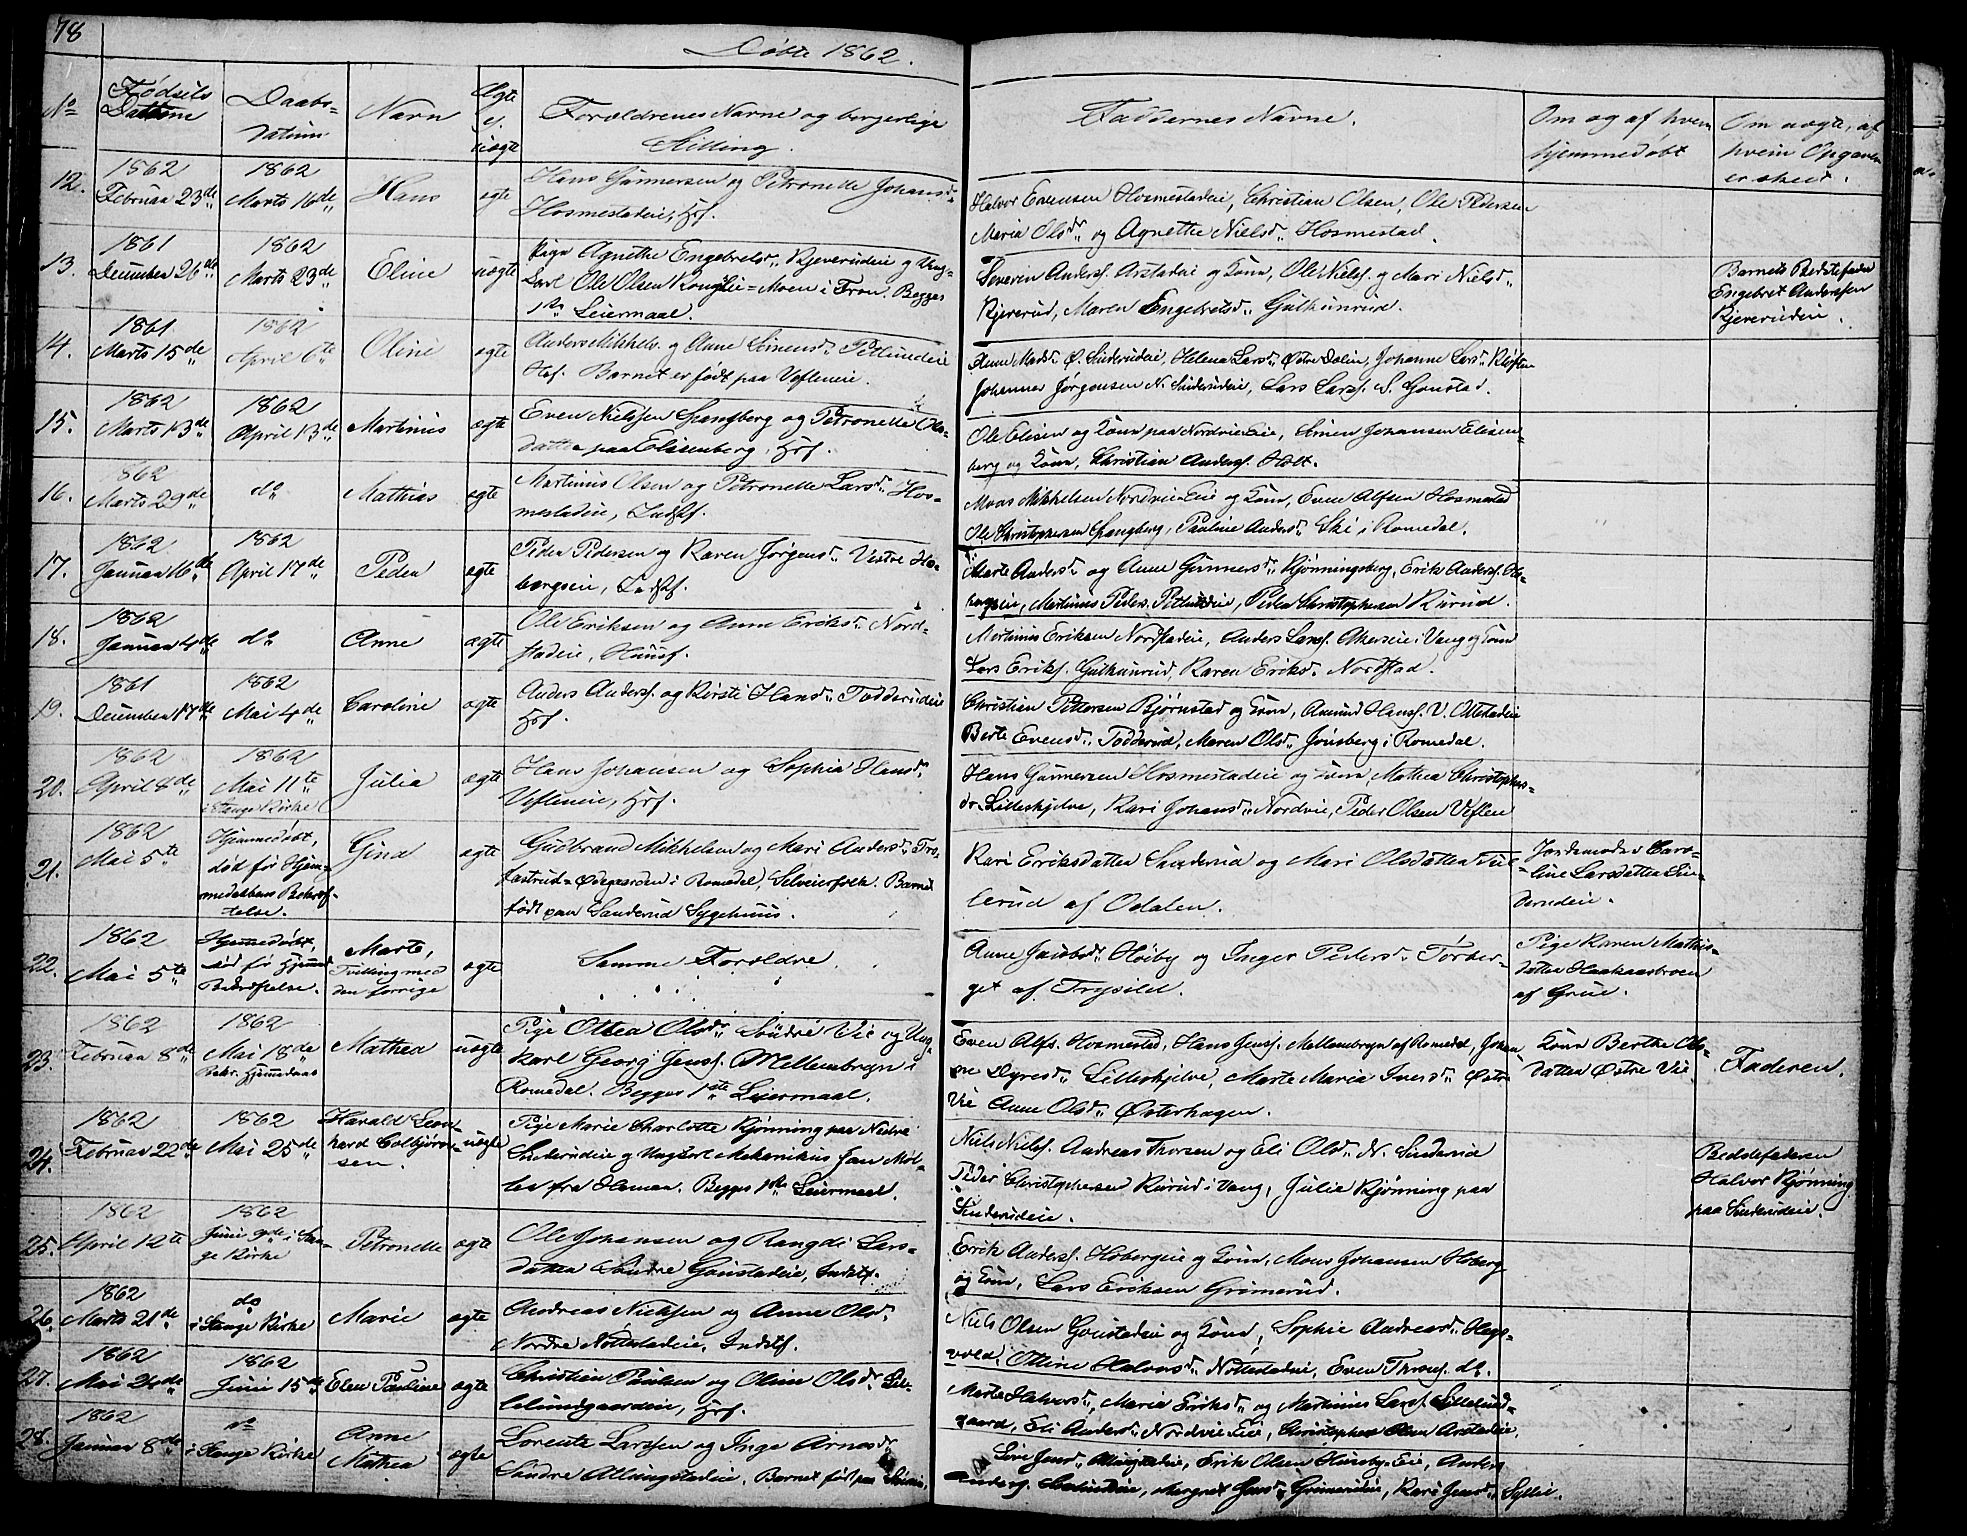 78
Døbte 1862.
No
Fødsels
Dattum
Daabs-
datum
Navn
Ægte
el.
uægte
Forældrenes Navne og borgerlige
Stilling.
Faddernes Navne.
Om og af hvem
hjemmedøbt
Om uægte, af
hvem Opgaven
er skeet.
12.
1862
Februar 23de
1862
Marts 16de
Hans
ægte
Hans Gunnersen og Petronelle Johansd.
Hosmestadeie, Hf.
Halvor Evensen Hosmestadeie, Christian Olsen, Ole Pedersen
Maria Olsd. og Agnethe Nielsd. Hosmestad.
13.
1861
December 26de
1862
Marts 23de
Eline
uægte
Pige Agnethe Engebretsd. Kjeverudeie og Ung-
karl Ole Olsen Moen i Fron. Begges
1ste Leiermaal.
Severin Anders. Arstadeie og Kone, Ole Niels. og Mari Nielsd.
Kjeverud, Maren Engebretsd. Gulkunrud.
Barnets Bedstefader
Engebret Anderssen
Kjeverudeie.
14.
1861
Marts 15de
1862
April 6te
Oline
ægte
Anders Mikkels. og Anne Simensd. Petlundeie
Hsf. Barnet er født paa Vefleneie.
Anne Madsd. Ø. Sinderudeie, Helena Larsd. Østre Dalen, Johanne Larsd. Kløften
Johannes Jørgensen N. Sinderudeie, Lars Larss. S. Gonstad.
15.
1862
Marts 13de
1862
April 13de
Martinus
ægte
Even Nielssen Spangberg og Petronelle Ols-
datter paa Elisenberg, Hsf.
Ole Elisen og Kone paa Nordvie Eie, Simen Johansen Elisen-
berg og Kone, Christian Anders. Holt.
16.
1862
Marts 29de
do
Mathias
ægte
Martinus Olsen og Petronelle Larsd. Hos-
mestadeie, Indstf.
Moses Mikkelsen Nordvie-Eie og Kone, Even Alfsen Hosmestad
Ole Christophersen Spangberg, Pauline Andersd. Ski i Romedal.
17.
1862
Januar 16de
1862
April 17de
Peder
ægte
Peder Pedersen og Karen Jørgensd. Vestre Ho-
bergseie, Indstf.
Marte Andersd. og Anne Gunnersd. Kjønningsberg, Erik Anders. Ho-
bergseie, Martinus Peders. Petlundeie, Peder Christophersen Rurud.
18.
1862
Januar 4de
do
Anne
ægte
Ole Eriksen og Anne Eriksd. Nord-
stadeie, Huusf.
Martinus Eriksen Nordstadeie, Anders Larss. Akerseie i Vang og Kone
Lars Eriks. Gulkunrud, Karen Eriksd. Nordstad.
19.
1861
December 17de
1862
Mai 4de
Caroline
ægte
Anders Anders. og Kirsti Hansd. Todderudeie
Hsf.
Christian Pettersen Bjørnstad og Kone, Amund Hans. V. Ottestadeie
Berte Evensd. Todderud, Maren Olsd. Jønsberg i Romedal.
20.
1862
April 8de
1862
Mai 11te
i Stange Kirke
Julia
ægte
Hans Johansen og Sophia Hansd.
Vefleneie, Hsf.
Hans Gunnersen Hosmestadeie og Kone, Mathea Christophers-
dr. Lilleskjelve, Kari Johansd. Nordvie, Peder Olsen Veflen
21.
1862
Mai 5te
Hjemmedøbt,
død før Hjem-
medaabens Bekræf-
telse.
Gina
ægte
Gudbrand Mikkelsen og Mari Andersd. Fro-
gstad-Ødegaarden i Romedal, Selveierfolk. Barnet
født paa Sanderud Sygehuus.
Kari Eriksdatter Sanderud og Mari Olsdatter Tul-
lerud af Odalen.
Jordemoder Caro-
line Larsdatter San-
derudeie.
22.
1862
Mai 5te
Hjemmedøbt,
død før Hjemmed.
Bekræftelse.
Marte,
Tvilling med
den forrige
ægte
Samme Forældre.
Anne Jacobsd. Høiby og Inger Pedersd. Tørber-
get af Trysild.
Pige Karen Mathis-
datter Haakaasbroen
af Grue.
23.
1862
Februar 8de
1862
Mai 18de
Bekr. Hjemmedaab
Mathea
uægte
Pige Othea Olsd. Søndre Vie og Ung-
karl Georg Jenss. Mellembryn i
Romedal. Begges 1ste Leiermaal.
Even Alfs. Hosmestad, Hans Jenss. Mellembryn af Romedal, Johan-
ne Dyresd. Lilleskjelve, Marte Maria Iversd. Østre
Vie Anne Olsd. Østerhagen.
Kone Berthe Ols-
datter Østre Vie
Faderen.
24.
1862
Februar 22de
1862
Mai 25de
Harald Leon-
hard Colbjørn-
sen.
uægte
Pige Marie Charlotte Kjønning paa Nedre
Sinderudeie og Ungkarl Mekanikus Jan Møl-
ler fra Hamar. Begges 1ste Leiermaal.
Niels Niels. Andreas Thorsen og Eli Olsd. N. Sinderud
Peder Christophersen Rurud i Vang, Julia Kjønning paa
Sinderudeie.
Bedstefaderen
Halvor Kjønning
paa Sinderudeie.
25.
1862
April 12te
1862
Juni 9de i Stan-
ge Kirke
Petronelle
ægte
Ole Johansen og Rangdi Lars-
datter Søndre Gonstadeie, Indstf.
Erik Anders. Hobergeie og Kone, Mons Johansen Hoberg
og Kone, Lars Eriksen Grimerud.
26.
1862
Marts 21de
do
i Stange Kirke
Marie
ægte
Andreas Nielssen og Anne Olsd.
Nordre Nøttestadeie, Indstf.
Niels Olsen Gonstadeie og Kone, Sophie Andreasd. Hegg-
vold, Otline Halvorsd. Nøttestadeie, Even Throns. do.
27.
1862
Mai 26de
1862
Juni 15de
Elen Pauline
ægte
Christian Paulsen og Oline Olsd. Lil-
lelundgaardeie, Hsf.
Marte Halvorsd., Maria Eriksd. og Martinus Larss. Lillelund-
gaard, Eli Andersd. Nordvie Eie, Christopher Olsen Arstadeie.
28.
1862
Januar 8de
do
i Stange Kirke
Anne
Mathea
ægte
Lorents Larssen og Inge Arnesd.
Søndre Allingstadeie. Barnet født paa
Live Jensd. Allingstadeie, Erik Olsen Huseby Eie, Anders
Anders. Margret Jensd. Grimerudeie, Kari Jensd. Syllie.